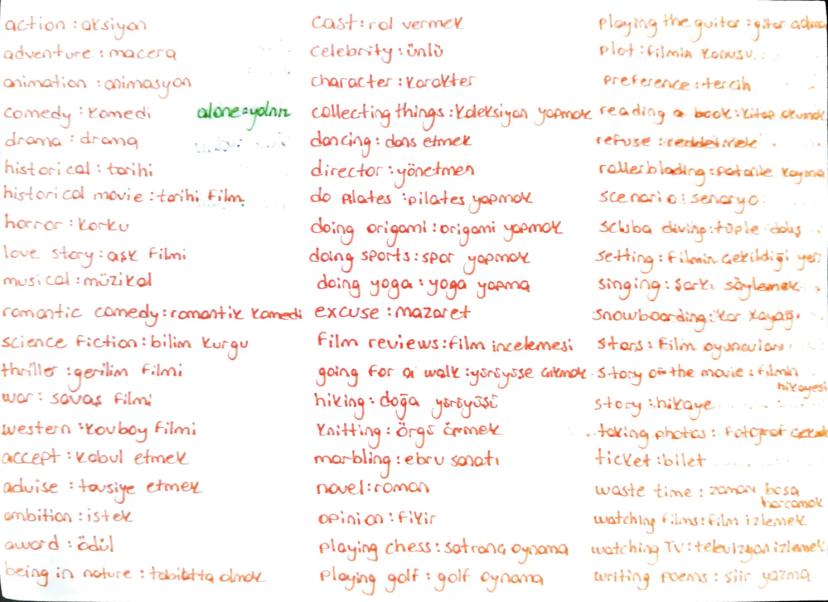 action : aksiyon
adventure : macera
animation : animasyon
comedy : komedi
alone = yalnız
drama : drama
historical : tarihi
historical movie : tarihi film
horror : korku
love story : aşk filmi
musical : müzikal
romantic comedy : romantik komedi
science fiction : bilim kurgu
thriller : gerilim filmi
war : savaş filmi
western : kovboy filmi
accept : kabul etmek
advise : tavsiye etmek
ambition : istek
award : ödül
being in nature : tabiatta olmak
cast : rol vermek
celebrity : ünlü
character : karakter
collecting things : koleksiyon yapmak
dancing : dans etmek
director : yönetmen
do pilates : pilates yapmak
doing origami : origami yapmak
doing sports : spor yapmak
doing yoga : yoga yapma
excuse : mazaret
film reviews : film incelemesi
going for a walk : yürüyüşe çıkmak
hiking : doğa yürüyüşü
knitting : örgü örmek
marbling : ebru sanatı
novel : roman
opinion : fikir
playing chess : satranç oynama
playing golf : golf oynama
playing the guitar : gitar
plot : filmin konusu
preference : tercih
reading a book : kitap okumak
refuse : reddetmek
rollerblading : patenle kayma
scenario : senaryo
scuba diving : tüple
setting : filmin çekildiği yer
singing : şarkı söylemek
snowboarding : kar kayağı
stars : film oyuncuları
story of the movie : filmin
hikayesi
story : hikaye
taking photos : fotoğraf
ticket : bilet
waste time : zamanı boşa
harcamak
watching films : film izlemek
watching TV : televizyon izlemek
writing poems : şiir yazma